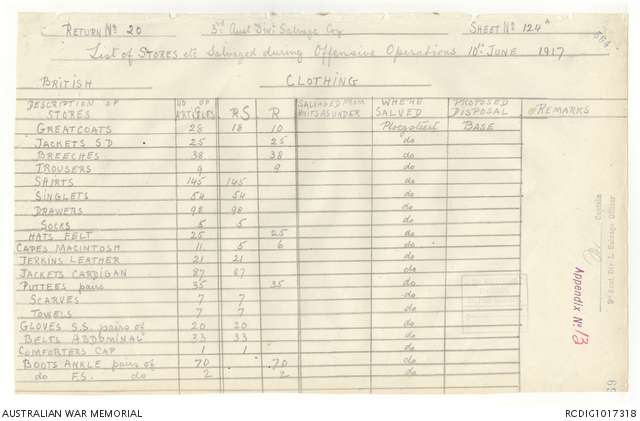 RETURN No 20 3rd Aust Divl Salvage Coy SHEET No 124A
564
List of STORES etc Salvaged during Offensive Operations 10th JUNE 1917
BRITISH CLOTHING
DESCRIPTION OF STORES No OF ARTICLES RS R SALVAGED FROM UNITS AS UNDER WHERE SALVED PROPOSED DISPOSAL REMARKS
GREATCOATS 28 18 10 Ploegsteert BASE
JACKETS S.D 25 25 do
BREECHES 38 38 do
TROUSERS 9 9 do
SHIRTS 145 145 do
SINGLETS 54 54 do
DRAWERS 98 98 do
SOCKS 5 5 do
HATS FELT 25 25 do
CAPES MACINTOSH 11 5 6 do
JERKINS LEATHER 21 21 do
JACKETS CARDIGAN 87 87 do
PUTTEES pairs 35 35 do
SCARVES 7 7 do
TOWELS 7 7 do
GLOVES S.S. pairs of 20 20 do
BELTS ABDOMINAL 33 33 do
COMFORTERS CAP 1 1 do
BOOTS ANKLE pairs of 70 70 do
do F.S. do 2 2 do
Captain
3rd Aust. Div. L. Salvage Officer
Appendix No. 13
AUSTRALIAN WAR MEMORIAL RCDIG1017318